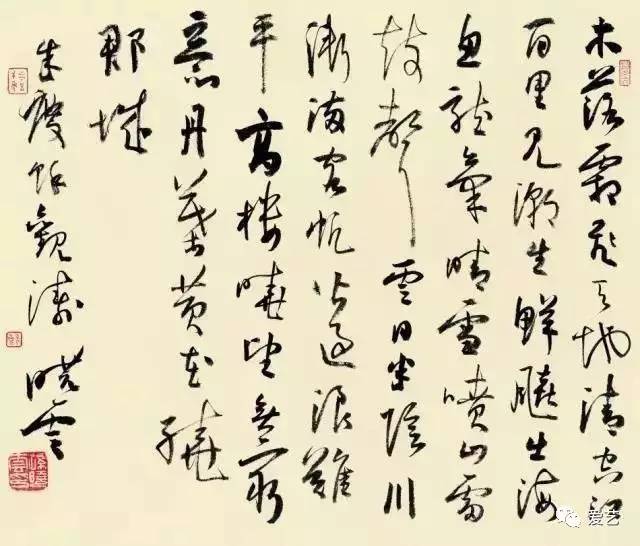 木落霜飛天地清空江
百里見潮生鮮飈出海
魚龍氣晴雪噴山雷
鼓聲雲日半陰川
漸滿客帆皆過浪難
平高樓曉望無窮
意丹葉黃花繞
郡城
朱慶餘觀濤 曉雲
爱艺